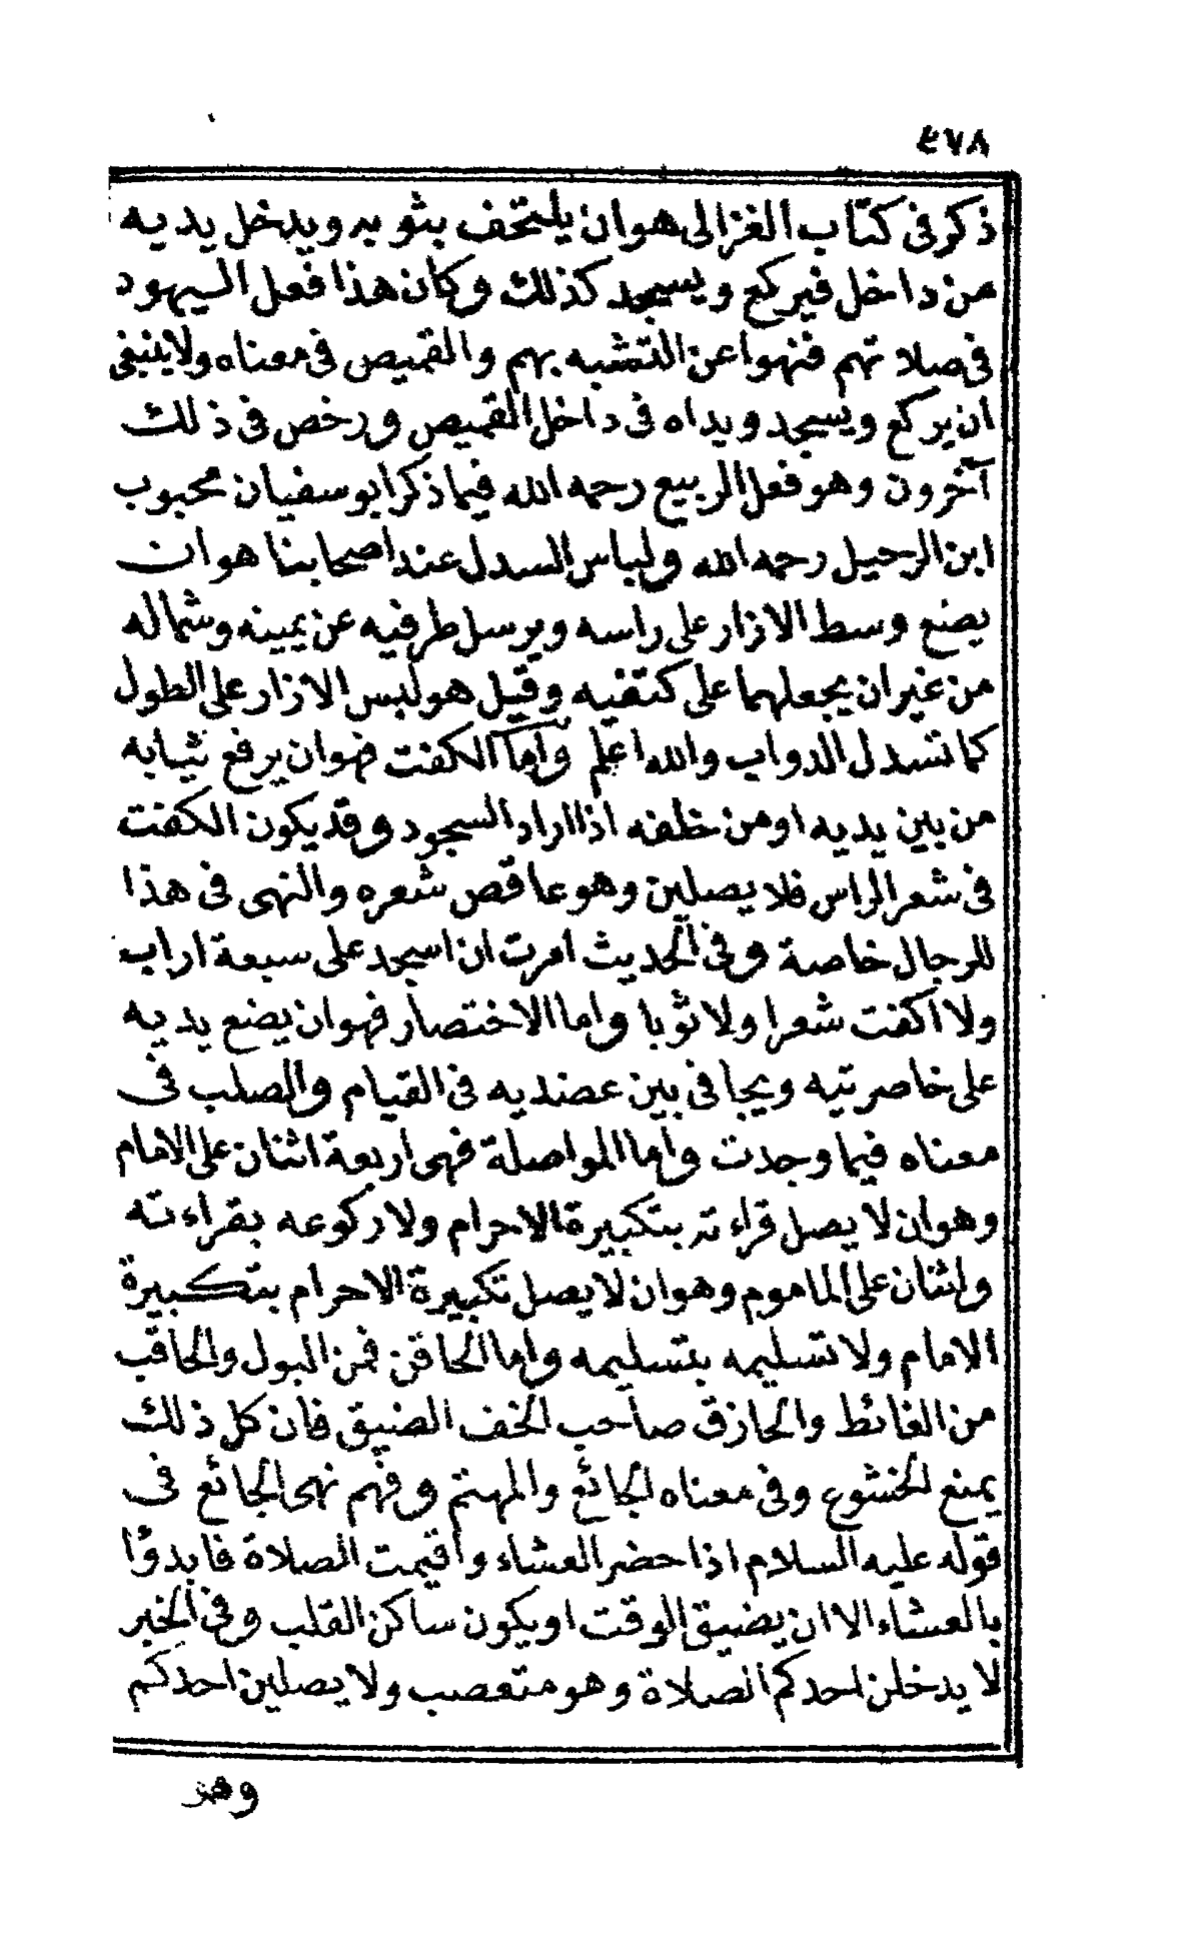 ٤٧٨
ذكر فى كتاب الغزالى هو ان يلتحف بثوبه ويدخل يديه
من داخل فيركع ويسجد كذلك وكان هذا فعل اليهود
فى صلاتهم فنهوا عن التشبه بهم والقميص فى معناه ولا ينبغى
ان يركع ويسجد ويداه فى داخل القميص ورخص فى ذلك
آخرون وهو فعل الربيع رحمه الله فيما ذكر ابو سفيان محبوب
ابن الرحيل رحمه الله ولباس السدل عند اصحابنا هو ان
يضع وسط الازار على راسه ويرسل طرفيه عن يمينه وشماله
من غير ان يجعلهما على كتفيه وقيل هو لبس الازار على الطول
كما تسدل الدواب والله اعلم وأما الكفت فهو ان يرفع ثيابه
من بين يديه او من خلفه اذا اراد السجود وقد يكون الكفت
فى شعر الراس فلا يصلين وهو عاقص شعره والنهى فى هذا
للرجال خاصة وفى الحديث امرت ان اسجد على سبعة اراب
ولا اكفت شعرا ولا ثوبا واما الاختصار فهو ان يضع يديه
على خاصرتيه ويجافى بين عضديه فى القيام والصلب فى
معناه فيما وجدت واما المواصلة فهى اربعة اثنان على الامام
وهو ان لا يصل قراءته بتكبيرة الاحرام ولا ركوعه بقراءته
واثنان على الماموم وهو ان لا يصل تكبيرة الاحرام بتكبيرة
الامام ولا تسليمه بتسليمه واما الحاقن فمن البول والحاقب
من الغائط والحازق صاحب الخف الضيق فان كل ذلك
يمنع الخشوع وفى معناه الجائع والمهتم وفهم نهى الجائع فى
قوله عليه السلام اذا حضر العشاء وأقيمت الصلاة فابدؤا
بالعشاء الا ان يضيق الوقت او يكون ساكن القلب وفى الخبر
لا يدخلن احدكم الصلاة وهو متعصب ولا يصلين احدكم
وهو